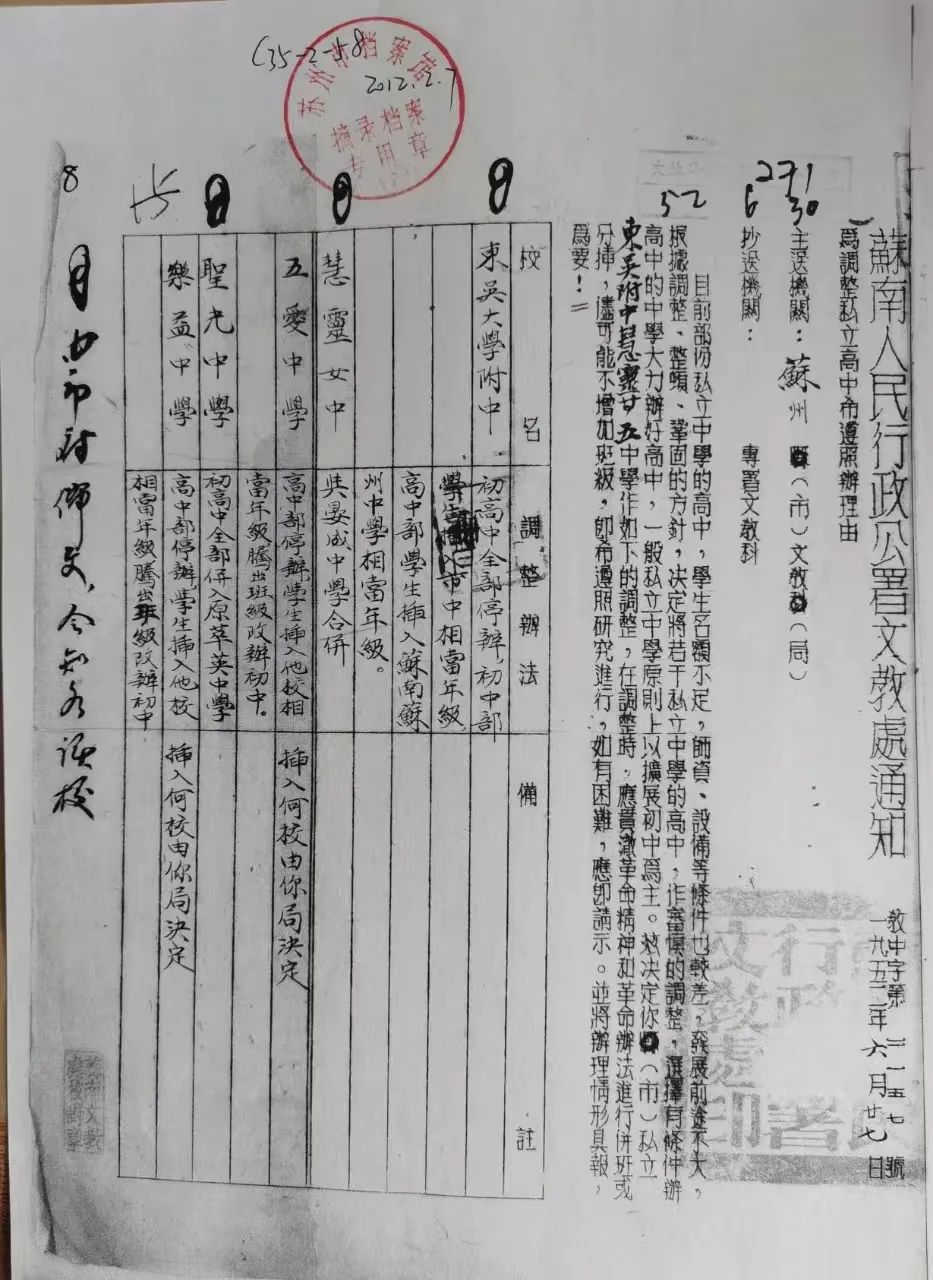 C35-2-58
苏州市档案馆
2012.2.7
摘录档案
专用章
271
6 30
52
蘇南人民行政公署文教處通知
教中字第三一五七號
一九五二年六月廿七日
爲調整私立高中希遵照辦理由
主送機關：蘇州（市）文教（局）
抄送機關： 專署文教科
目前部份私立中學的高中，學生名額不足，師資、設備等條件也較差，發展前途不大，
根據調整、整頓、鞏固的方針，决定將若干私立中學的高中，作審慎的調整，選擇有條件辦
高中的中學大力辦好高中，一般私立中學原則上以擴展初中爲主。茲决定你（市）私立
東吳附中慧靈等五中學作如下的調整，在調整時，應貫澈革命精神和革命辦法進行併班或
分插，儘可能不增加班級，卽希遵照研究進行，如有困難，應卽請示。並將辦理情形具報，
爲要！
校名 調整辦法 備註
東吳大學附中 初高中全部停辦，初中部
學生插入市中相當年級
高中部學生插入蘇南蘇
州中學相當年級。
慧靈女中 與晏成中學合併
五愛中學 高中部停辦學生插入他校相 插入何校由你局決定
當年級騰出班級改辦初中。
聖光中學 初高中全部併入原萃英中學
樂益中學 高中部停辦學生插入他校 插入何校由你局決定
相當年級騰出班級改辦初中
8